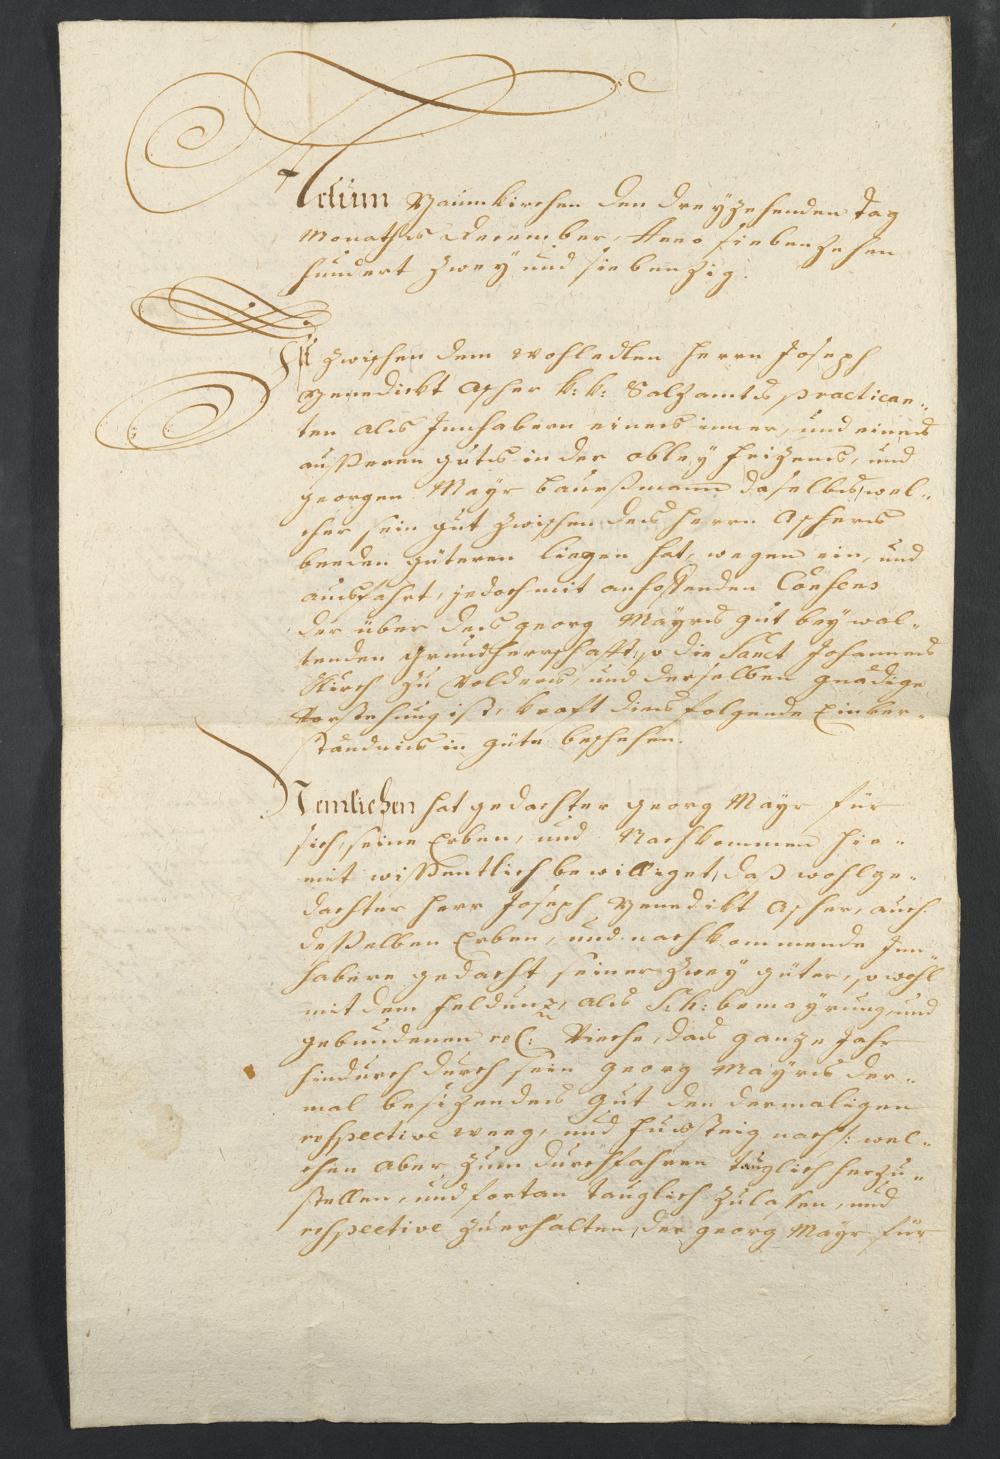 Actum Baumkirchen den dreyzehenden Tag
Monaths December, Anno siebenzehen
hundert zwey und siebenzig.
Ist zwischen dem Wohledlen Herrn Joseph
Benedickt Ascher k: k: Salzamts practican„
ten als Innhabern eines inner, und eines
aüsseren Guts in der obley Frizens, und
Georgen Mayr Bauersmann daselbs, wel„
cher sein Gut zwischen des Herrn Aschers
beeden Güteren liegen hat, wegen ein, und
ausfahrt, jedoch mit anhoffenden Consens
der über des Georg Mayrs Gut beywal„
tenden Grundherrschafft, so die Sanct Johannes
Kirch zu Volders, und derselben gnädige
Vorstehung ist, kraft dies folgende Einver„
ständnis in güte beschehen.
Nemlichen hat gedachter Georg Mayr für
sich, seine Erben, und Nachkommen hie„
mit wissentlich bewilliget, daß wohlge„
dachter Herr Joseph Benedikt Ascher, auch
desselben Erben, und nachkommende Inn„
habere gedacht seiner zwey Güter, sowohl
mit dem Feldnuz, als S:h: bemayrung, und
gebundenen rev: Vieche, das ganze Jahr
hindurch durch sein Georg Mayrs der„
mal besizendes Gut den dermaligen
respective Weeg, und Fuessteig nach: wel„
chen aber zum durchfahren tauglich herzu„
stellen, und fortan tauglich zulassen, und
respective zuerhalten, der Georg Mayr für